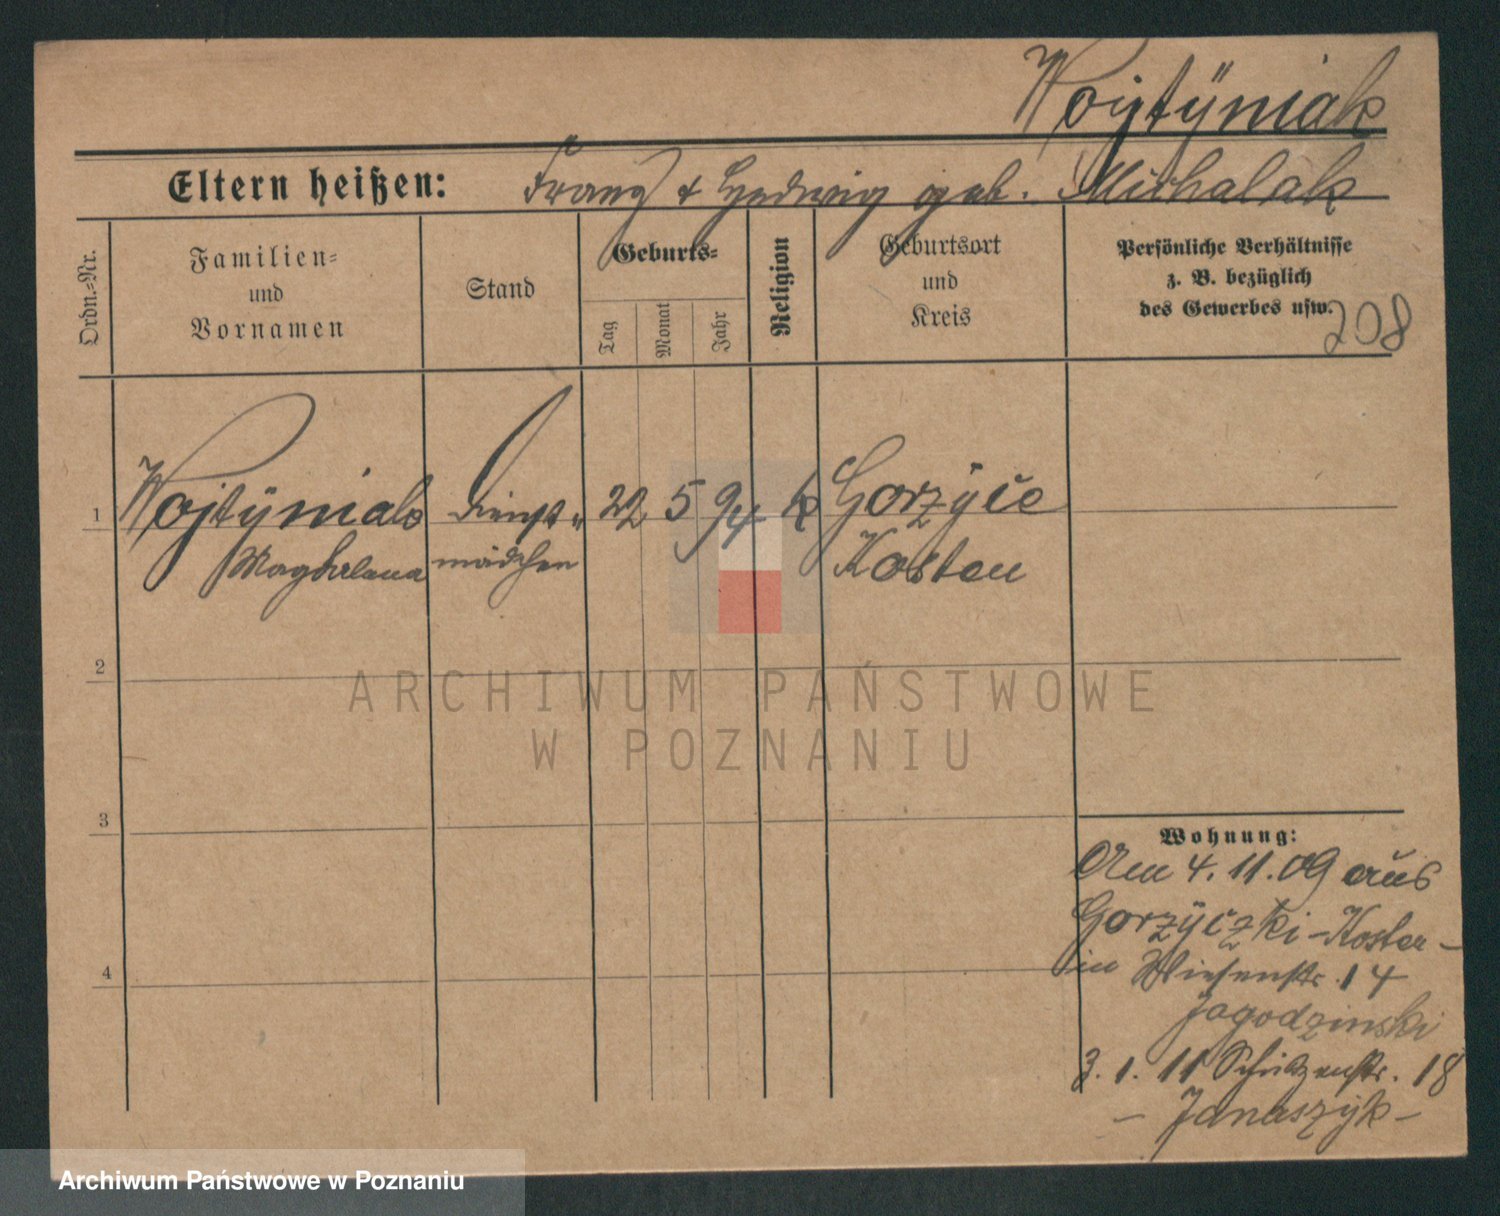 Wojtÿniak
Eltern heißen: Franz & Hedwig geb. Michalak
Ordn.-Nr.
Familien-
und
Vornamen
Stand
Geburts-
Tag
Monat
Jahr
Religion
Geburtsort
und
Kreis
Persönliche Verhältnisse
z. B. bezüglich
des Gewerbes usw.
208
1 Wojtÿniak Dienst- 22 5 94 k Gorzÿce
Magdalena mädchen Kosten
2
3
4
ARCHIWUM PAŃSTWOWE
W POZNANIU
Wohnung:
Am 4.11.09 aus
Gorzÿczki - Kosten -
in Wiesenstr. 14
Jagodzinski
3.1.11 Schützenstr. 18
- Janaszÿk -
Archiwum Państwowe w Poznaniu